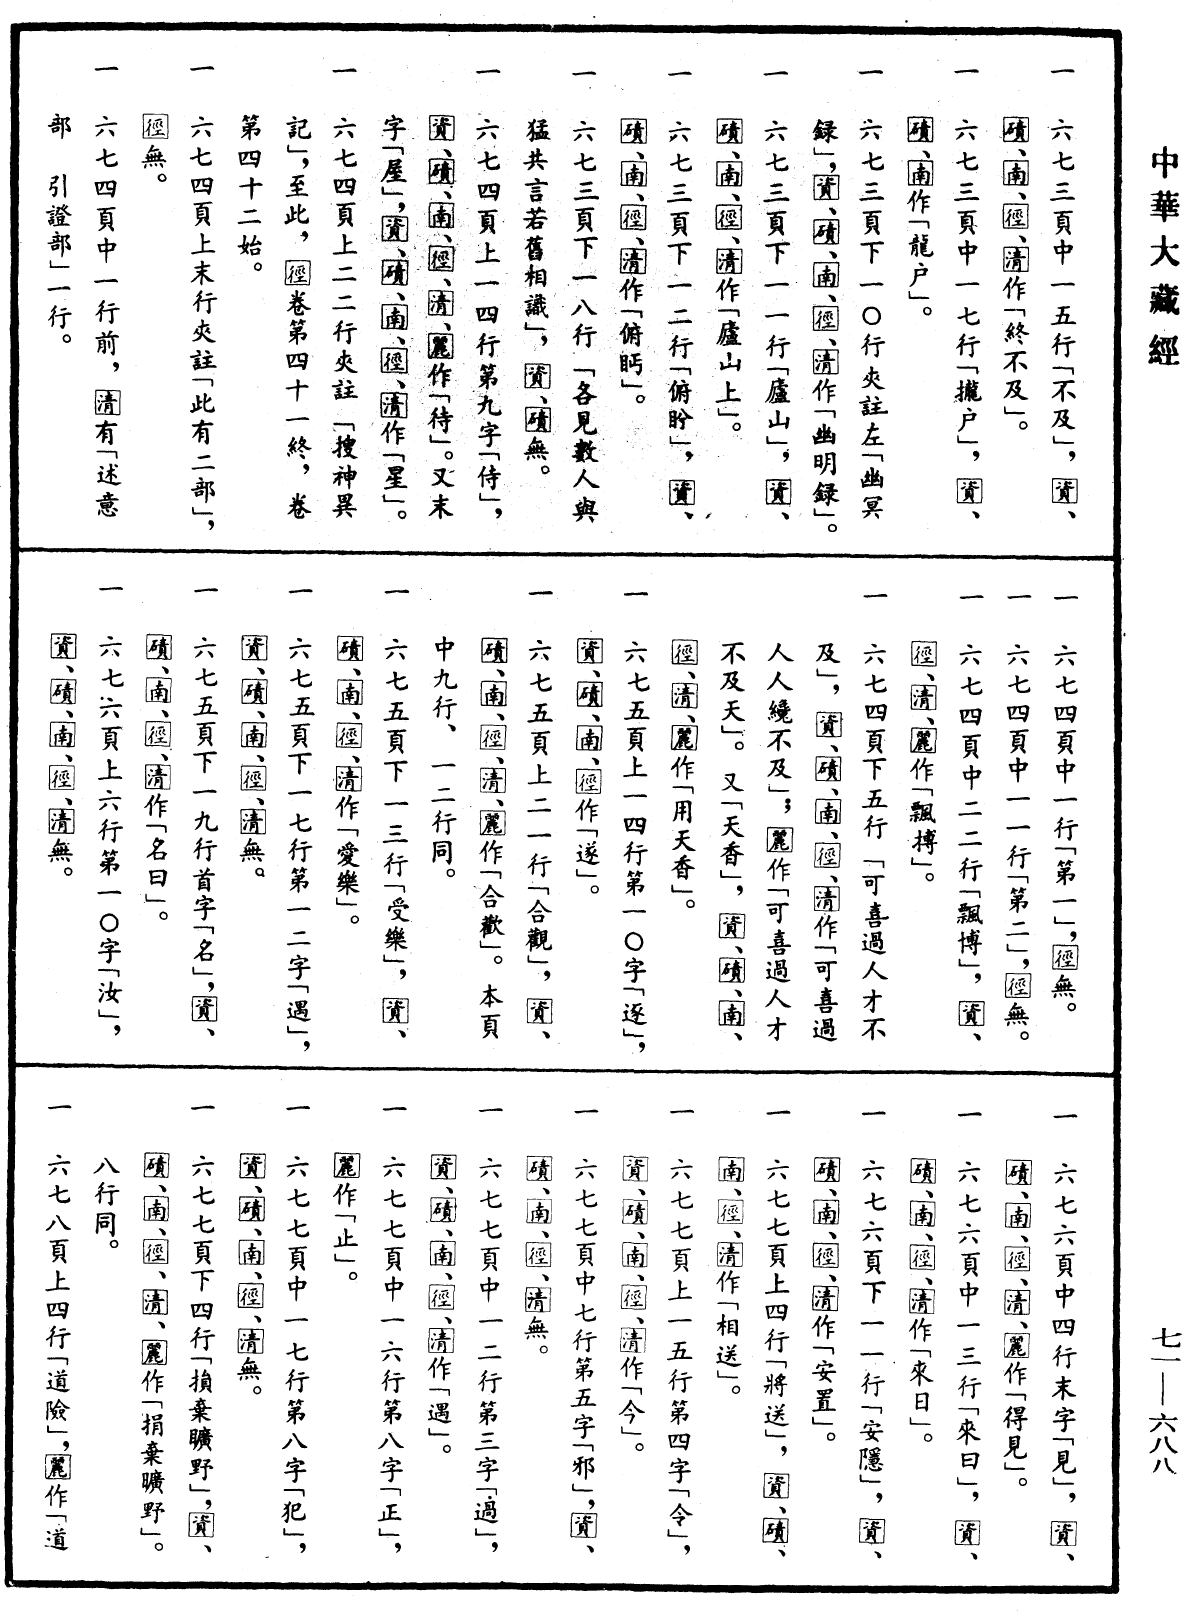 中華大藏經
一　六七三頁中一五行「不及」，資、
磧、南、徑、清作「終不及」。
一　六七三頁中一七行「攏户」，資、
磧、南作「龍户」。
一　六七三頁下一〇行夾註左「幽冥
録」，資、磧、南、徑、清作「幽明録」。
一　六七三頁下一一行「廬山」，資、
磧、南、徑、清作「廬山上」。
一　六七三頁下一二行「俯盻」，資、
磧、南、徑、清作「俯眄」。
一　六七三頁下一八行「各見數人與
猛共言若舊相識」，資、磧無。
一　六七四頁上一四行第九字「侍」，
資、磧、南、徑、清、麗作「待」。又末
字「屋」，資、磧、南、徑、清作「星」。
一　六七四頁上二二行夾註「搜神異
記」，至此，徑卷第四十一終，卷
第四十二始。
一　六七四頁上末行夾註「此有二部」，
徑無。
一　六七四頁中一行前，清有「述意
部　引證部」一行。
一　六七四頁中一行「第一」，徑無。
一　六七四頁中一一行「第二」，徑無。
一　六七四頁中二二行「飄博」，資、
徑、清、麗作「飄摶」。
一　六七四頁下五行「可喜過人才不
及」，資、磧、南、徑、清作「可喜過
人人纔不及」；麗作「可喜過人才
不及天」。又「天香」，資、磧、南、
徑、清、麗作「用天香」。
一　六七五頁上一四行第一〇字「逐」，
資、磧、南、徑作「遂」。
一　六七五頁上二一行「合觀」，資、
磧、南、徑、清、麗作「合歡」。本頁
中九行、一二行同。
一　六七五頁下一三行「受樂」，資、
磧、南、徑、清作「愛樂」。
一　六七五頁下一七行第一二字「遇」，
資、磧、南、徑、清無。
一　六七五頁下一九行首字「名」，資、
磧、南、徑、清作「名曰」。
一　六七六頁上六行第一〇字「汝」，
資、磧、南、徑、清無。
一　六七六頁中四行末字「見」，資、
磧、南、徑、清、麗作「得見」。
一　六七六頁中一三行「來曰」，資、
磧、南、徑、清作「來日」。
一　六七六頁下一一行「安隱」，資、
磧、南、徑、清作「安置」。
一　六七七頁上四行「將送」，資、磧、
南、徑、清作「相送」。
一　六七七頁上一五行第四字「令」，
資、磧、南、徑、清作「今」。
一　六七七頁中七行第五字「邪」，資、
磧、南、徑、清無。
一　六七七頁中一二行第三字「過」，
資、磧、南、徑、清作「遇」。
一　六七七頁中一六行第八字「正」，
麗作「止」。
一　六七七頁中一七行第八字「犯」，
資、磧、南、徑、清無。
一　六七七頁下四行「損棄曠野」，資、
磧、南、徑、清、麗作「捐棄曠野」。
八行同。
一　六七八頁上四行「道險」，麗作「道
七一—六八八